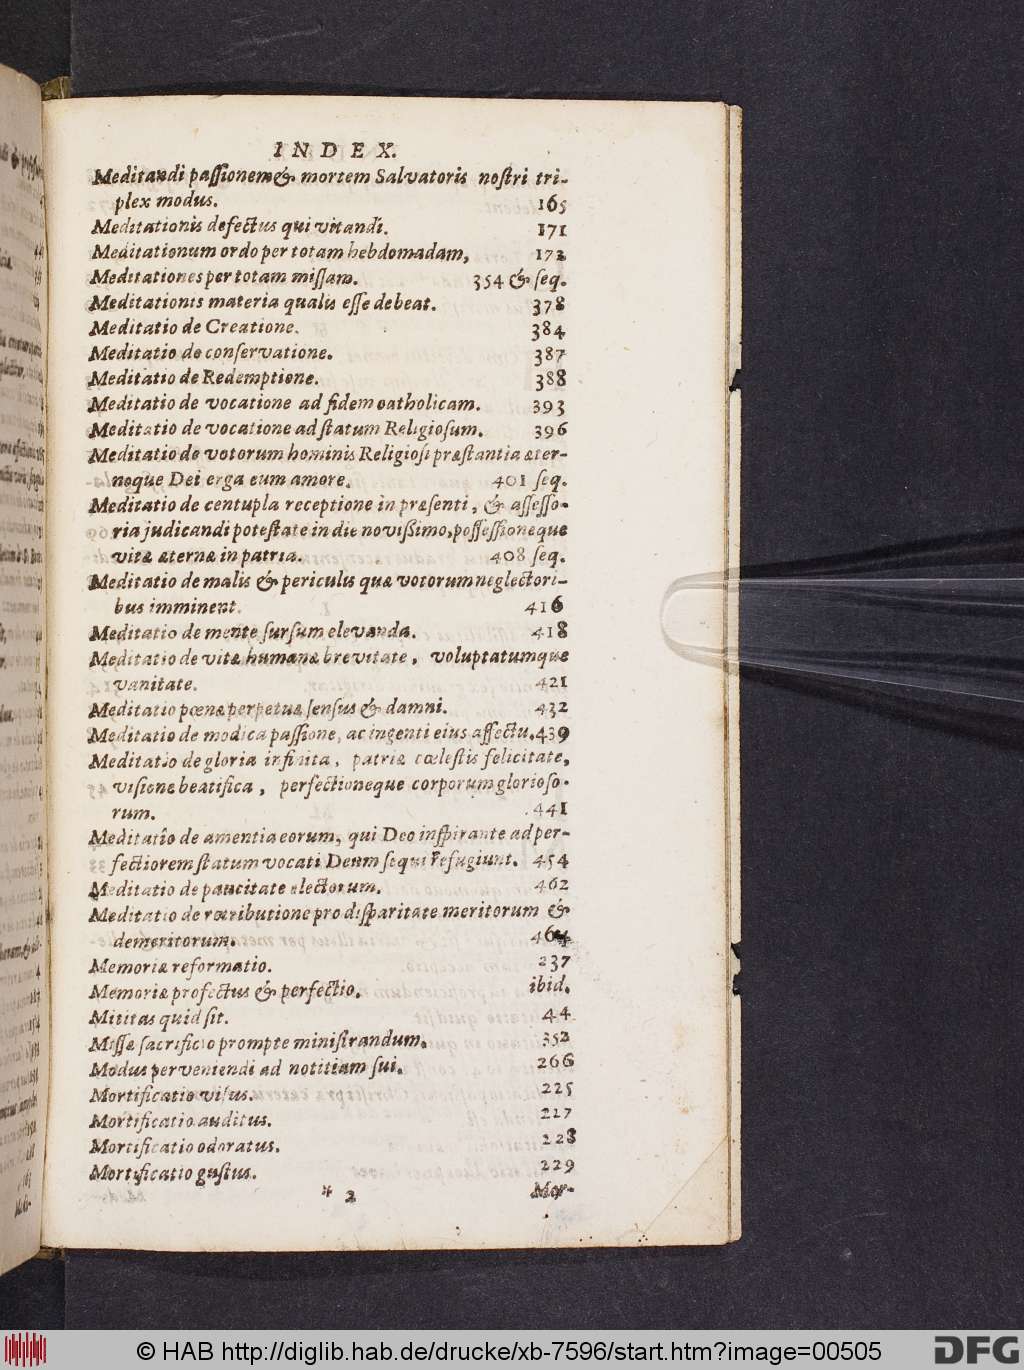 INDEX.
Meditandi paſſionem & mortem Salvatoris noſtri tri-
plex modus. 165
Meditationis defectus qui vitandi. 171
Meditationum ordo per totam hebdomadam, 172
Meditationes per totam miſſam. 354 & ſeq.
Meditationis materia qualis eſſe debeat. 378
Meditatio de Creatione. 384
Meditatio de conſervatione. 387
Meditatio de Redemptione. 388
Meditatio de vocatione ad fidem catholicam. 393
Meditatio de vocatione ad ſtatum Religioſum. 396
Meditatio de votorum hominis Religioſi præſtantia æter-
noque Dei erga eum amore. 401 ſeq.
Meditatio de centupla receptione in præſenti, & aſſeſſo-
ria judicandi poteſtate in die novißimo, poſſeſſioneque
vitæ æternæ in patria. 408 ſeq.
Meditatio de malis & periculis quæ votorum neglectori-
bus imminent. 416
Meditatio de mente ſurſum elevanda. 418
Meditatio de vitæ humanæ brevitate, voluptatumque
vanitate. 421
Meditatio pœnæ perpetuæ ſenſus & damni. 432
Meditatio de modica paſſione, ac ingenti eius affectu. 439
Meditatio de gloria infinita, patriæ cœleſtis felicitate,
viſione beatifica, perfectioneque corporum glorioſo-
rum. 441
Meditatio de amentia eorum, qui Deo inſpirante ad per-
fectiorem ſtatum vocati Deum ſequi refugiunt. 454
Meditatio de paucitate electorum. 462
Meditatio de retributione pro diſparitate meritorum &
demeritorum. 464
Memoriæ reformatio. 237
Memoriæ profectus & perfectio. ibid.
Mititas quid ſit. 44
Miſſæ ſacrificio prompte miniſtrandum. 352
Modus perveniendi ad notitiam ſui. 266
Mortificatio viſus. 225
Mortificatio auditus. 227
Mortificatio odoratus. 228
Mortificatio guſtus. 229
* 2 Mor-
© HAB http://diglib.hab.de/drucke/xb-7596/start.htm?image=00505
DFG